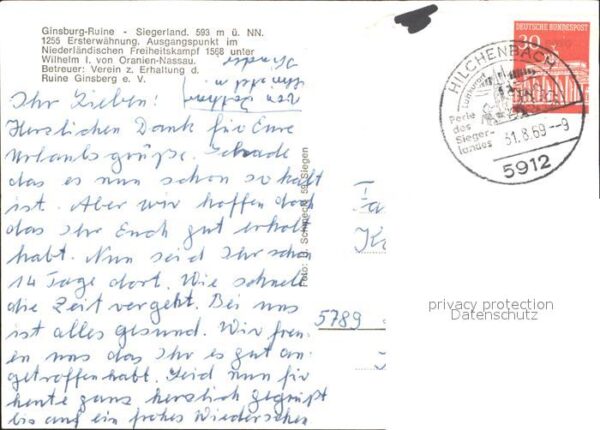 Ginsburg-Ruine - Siegerland. 593 m ü. NN.
1255 Ersterwähnung. Ausgangspunkt im
Niederländischen Freiheitskampf 1568 unter
Wilhelm I. von Oranien-Nassau.
Betreuer: Verein z. Erhaltung d.
Ruine Ginsberg e. V.
Ihr Lieben!
Herzlichen Dank für Eure
Urlaubsgrüße. Schade
das es nun schon so kalt
ist. Aber wir hoffen doch
das Ihr Euch gut erholt
habt. Nun seid Ihr schon
14 Tage dort. Wie schnell
die Zeit vergeht. Bei uns
ist alles gesund. Wir freu-
en uns das Ihr es gut an-
getroffen habt. Seid nun für
heute ganz herzlich gegrüßt
bis auf ein frohes Wiedersehen
Siegen
DEUTSCHE BUNDESPOST
30
HILCHENBACH
Luftkurort
Perle
des
Sieger-
landes
31.8.69--9
5912
5789
privacy protection
Datenschutz